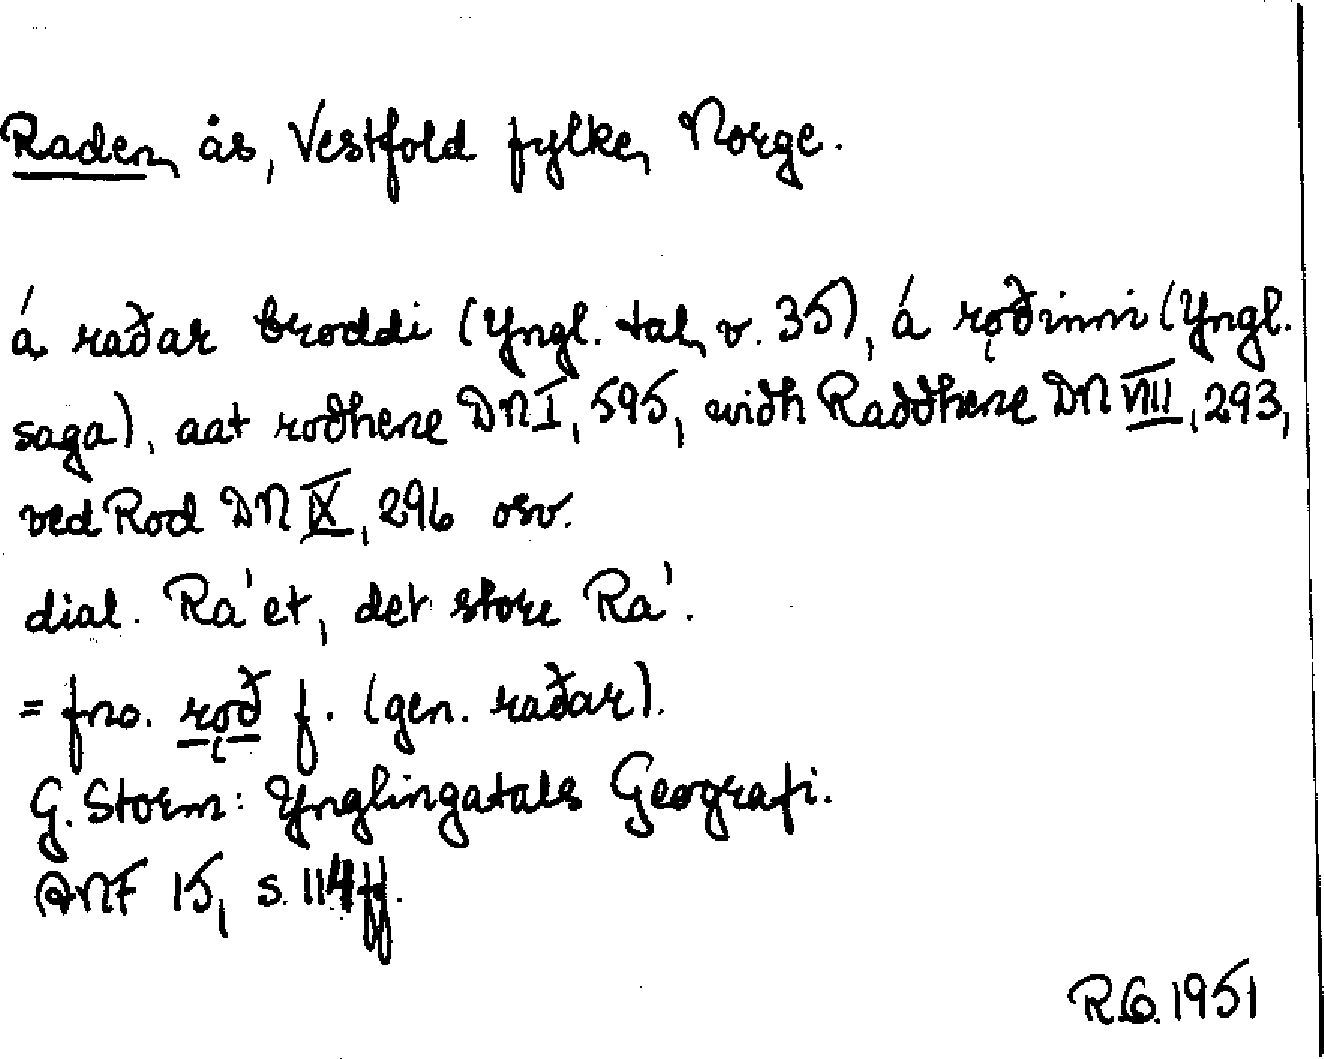 Raden, ås, Vestfold fylke, Norge.
á raðar broddi (Yngl. tal, v. 35), á rǫðinni (Yngl.
saga), aat rodhene DN I, 595, widh Raddhene DN VIII, 293,
ved Rod DN IX, 296 osv.
dial. Ra'et, det store Ra'.
= fno. rǫð f. (gen. raðar).
G. Storm: Ynglingatals Geografi.
ANF 15, s. 114 ff.
R.G. 1951